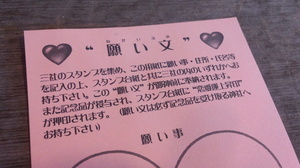 ねがいぶみ
“願い文”
三社のスタンプを集め、この用紙に願い事・住所・氏名等
を記入の上、スタンプ台紙と共に三社の内のいずれかへお
持ち下さい。この“願い文”が御神前に奉納されます。
また記念品が授与され、スタンプ台紙に“恋愛運上昇印”
が押印されます。(願い文は必ず記念品を受け取る神社へ
お持ち下さい)
願い事